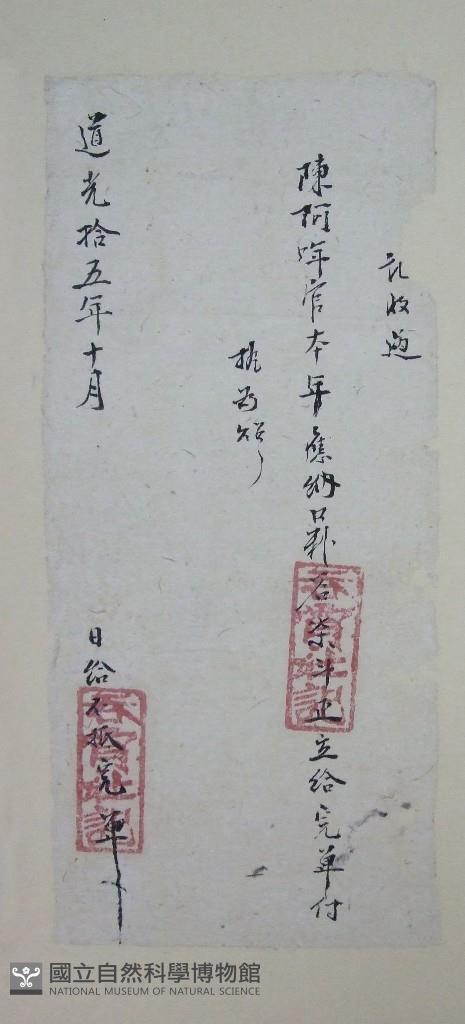 收過
陳阿 官本年應納 石柒斗正立給完單付
執為炤
道光拾五年十月 日給 不抵完單
國立自然科學博物館
NATIONAL MUSEUM OF NATURAL SCIENCE